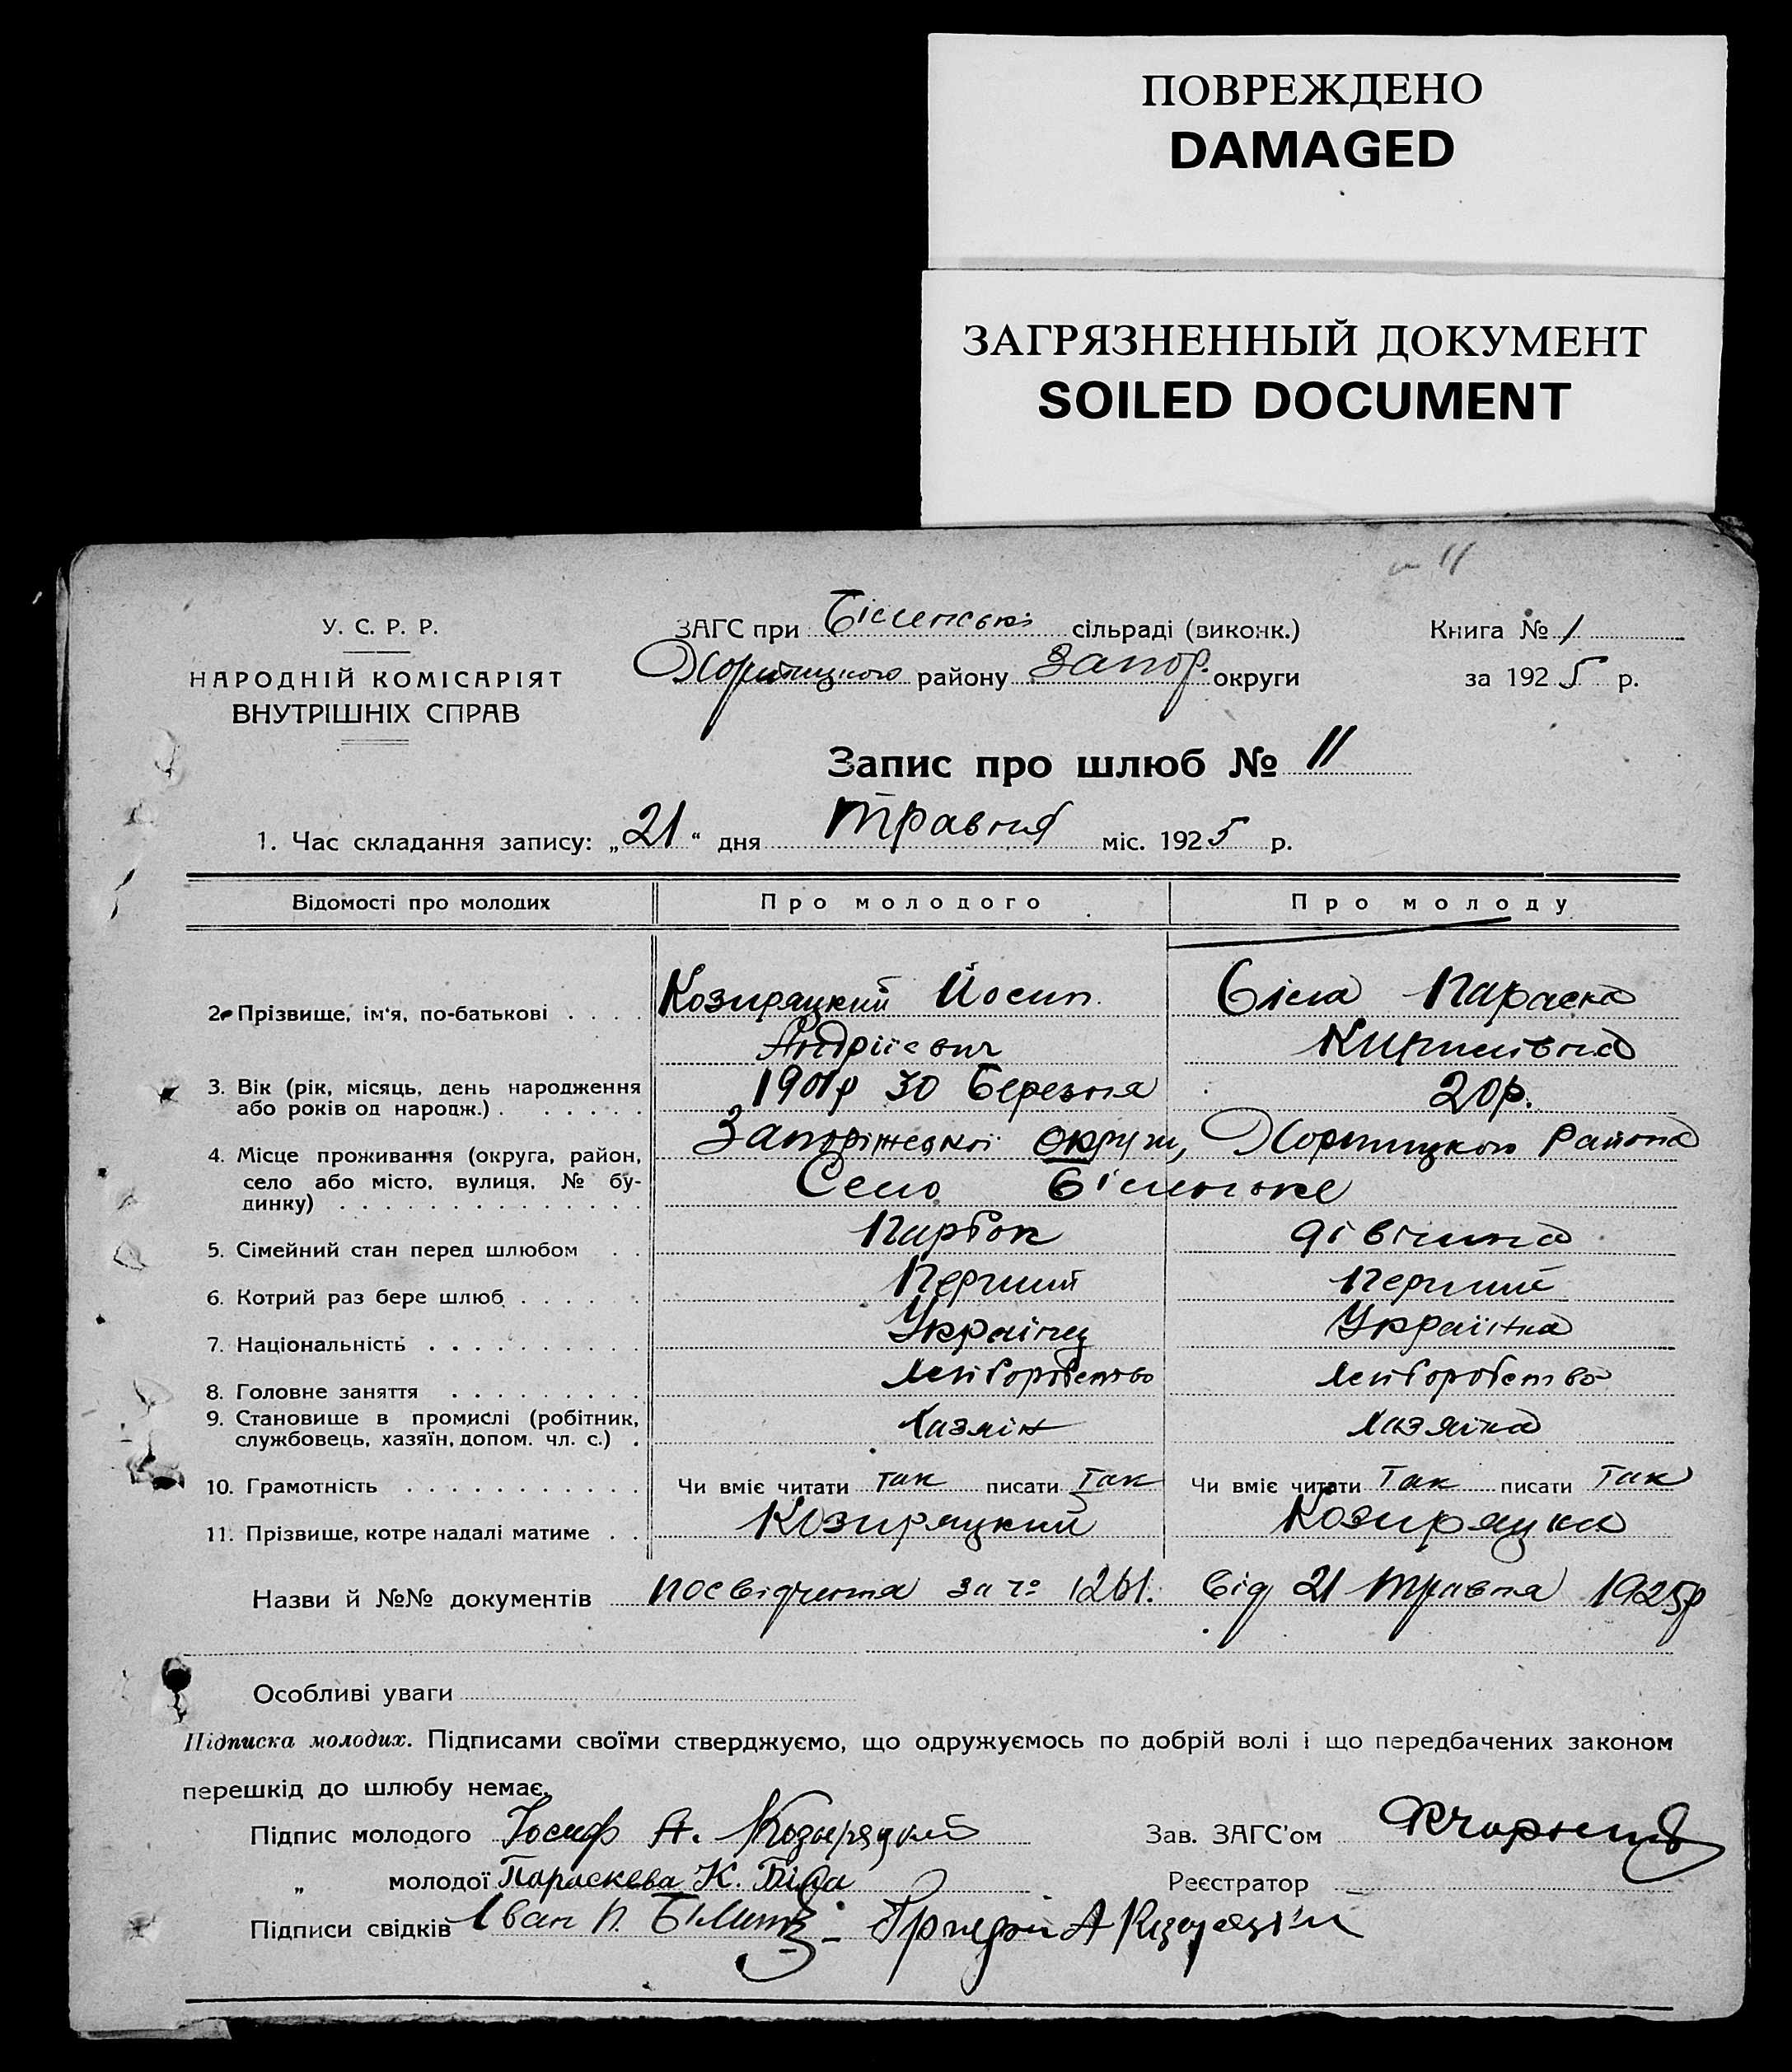 ПОВРЕЖДЕНО
DAMAGED
ЗАГРЯЗНЕННЫЙ ДОКУМЕНТ
SOILED DOCUMENT
11
У. С. Р. Р.
НАРОДНІЙ КОМІСАРІЯТ
ВНУТРІШНІХ СПРАВ
ЗАГС при Біленські сільраді (виконк.)
Хортицького району Запор. округи
Книга № 1
за 1925 р.
Запис про шлюб № 11
1. Час складання запису: „21“ дня Травня міс. 1925 р.
Відомості про молодих Про молодого Про молоду
2. Прізвище, ім'я, по-батькові . . . . Козиряцкий Йосип Біла Параска
Андріієвич Кирилівна
3. Вік (рік, місяць, день народження 1901р 30 березня 20р.
або років од народж.) . . . . . .
4. Місце проживання (округа, район, Запоріжської округи, Хортицького Района
село або місто, вулиця, № бу- Село Біленьке
динку) . . . . . . . . . . . . . .
5. Сімейний стан перед шлюбом . . Парубок дівчина
6. Котрий раз бере шлюб . . . . . Перший Перший
7. Національність . . . . . . . . . . Українец Українка
8. Головне заняття . . . . . . . . . Хліборобство Хліборобство
9. Становище в промислі (робітник, Хазяїн Хазяїка
службовець, хазяїн, допом. чл. с.) .
10. Грамотність . . . . . . . . . . . Чи вміє читати так писати так Чи вміє читати так писати так
11. Прізвище, котре надалі матиме . . Козиряцкий Козиряцка
Назви й №№ документів посвідчення за № 1261. від 21 травня 1925р
Особливі уваги
Підписка молодих. Підписами своїми стверджуємо, що одружуємось по добрій волі і що передбачених законом
перешкід до шлюбу немає.
Підпис молодого Іосиф А. Козиряцкий Зав. ЗАГС'ом
„ молодої Параскева К. Біла Реєстратор
Підписи свідків Іван П.